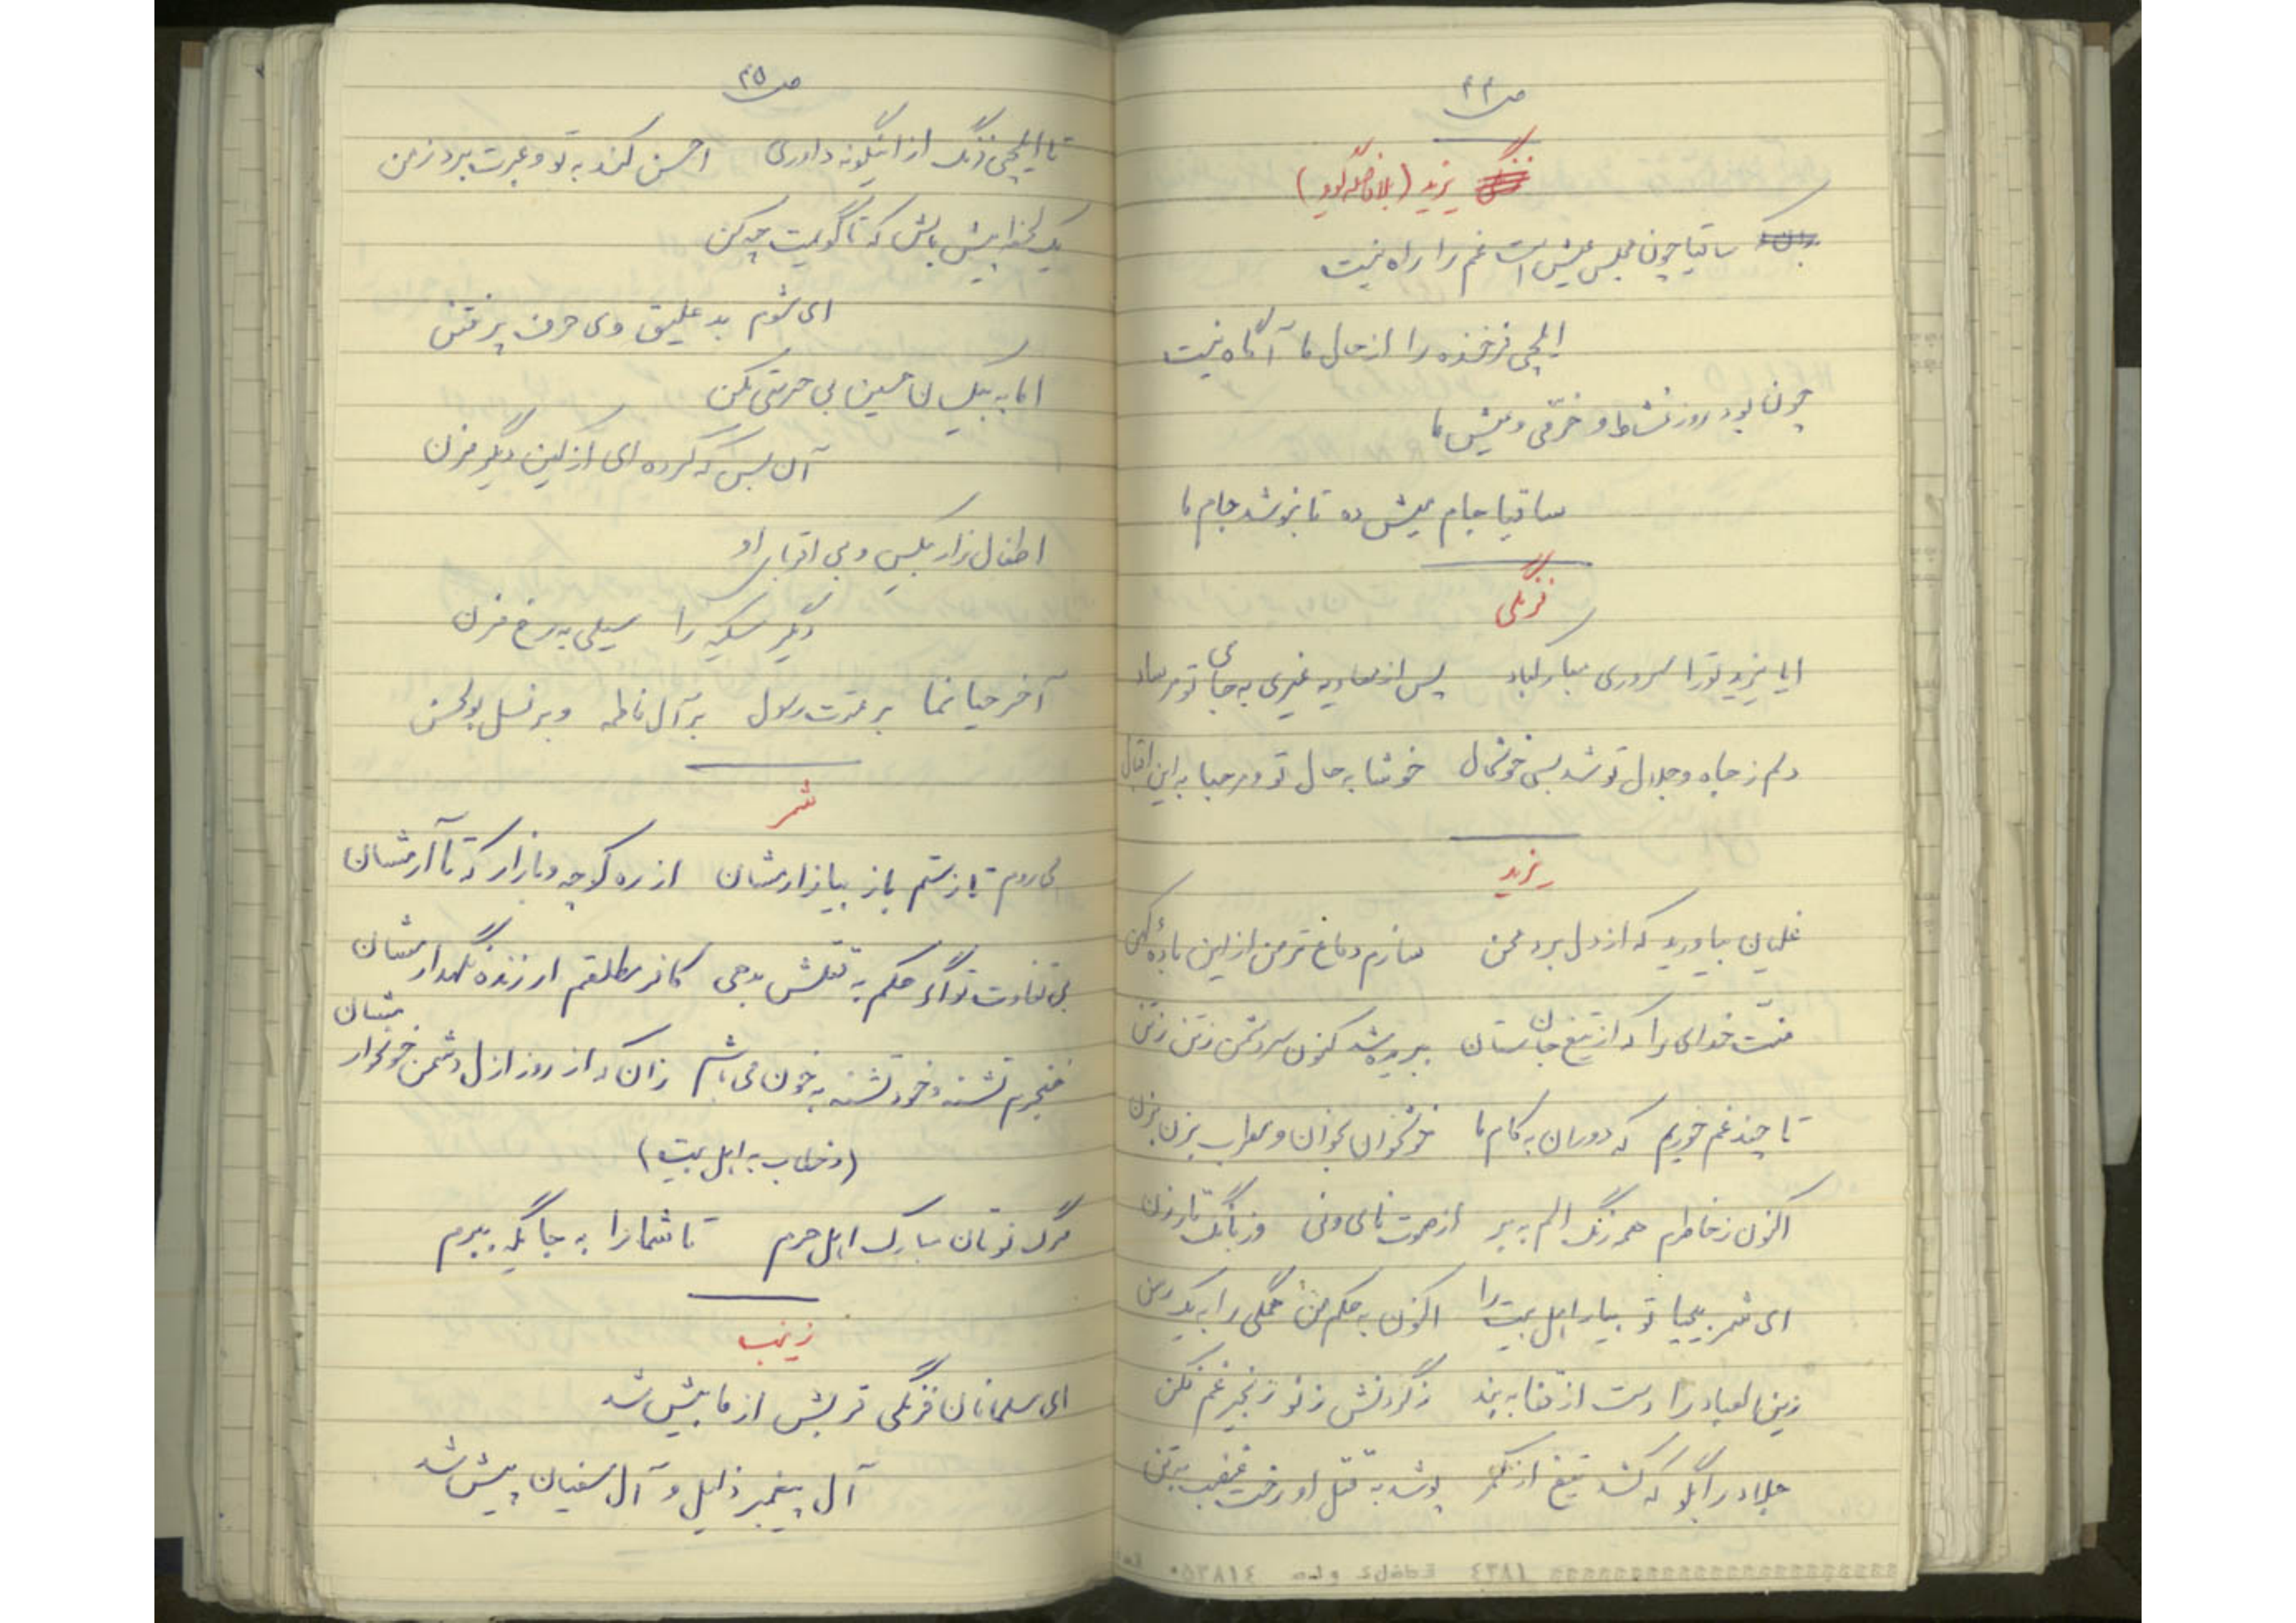 ص ۲۴
یزید (بلافاصله گوید)
ساقیا چون مجلس عیش است غم را راه نیست
ایلچی فرخنده را از حال ما آگاه نیست
چون بود روز نشاط و خرّمی و عیش ما
ساقیا جام میش ده تا بنوشد جام ما
فرنگی
ایا یزید تو را سروری مبارکباد پس از معاویه غیری به جای تو مرساد
دلم ز جاه و جلال تو شد بسی خوشحال خوشا به حال تو و مرحبا به این اقبال
یزید
غلیان بیاورید که از دل برد محن سازم دماغ تر من از این بادهٔ کهن
منّت خدای را که از تیغ جان ستان ببریده شد کنون سر دشمن ز تن
تا چند غم خوریم که دوران به کام ما خوشخوان بخوان و مطرب بزن بزن
اکنون ز خاطرم همه زنگ الم به بر از صوت نای و نی وز بانگ تار زن
ای شمر بیحیا تو بیار اهل بیت را اکنون به حکم من همگی را به یک رسن
زین العباد را دست از قفا به بند ز گردنش ز نو زنجیر غم فکن
جلاد را بگو که کشد تیغ از کمر پوشد به قتل او رخت غضب به تن
ص ۲۵
تا ایلچی فرنگ از اینگونه داوری احسن کند به تو و عبرت برد ز من
یک لحظه پیش باش که تا گویمت چه کن
ای شوم بد علیق وی حرف پر فتن
اما به بیکسان حسین بی حرمتی مکن
آن بس که کرده ای از کین دیگر مزن
اطفال زار بیکس و بی اقربای او
دیگر سکینه را سیلی به رخ مزن
آخر حیا نما بر عترت رسول بر آل فاطمه و بر نسل بوالحسن
شمر
می روم تا ز ستم باز بیازارمشان از ره کوچه و بازار که تا آرمشان
بی تفاوت تو اگر حکم به قتلش بدهی کافر مطلقم ار زنده نگهدارمشان
خنجرم تشنه و خود تشنه به خون می باشم زان که از روز ازل دشمن خونخوارمشان
(و خطاب به اهل بیت)
مرگ نوتان مبارک اهل حرم تا شما را به جایگه ببرم
زینب
ای مسلمانان فرنگی قربش از ما بیش شد
آل پیغمبر ذلیل و آل سفیان پیش شد